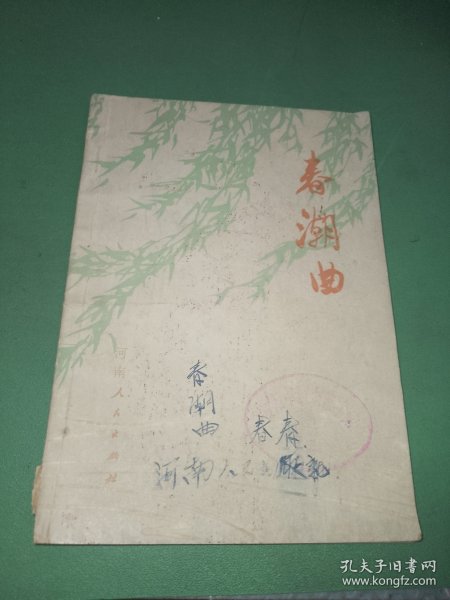 春潮曲
河南人民出版社
春潮曲
春春
河南人民出版社
孔夫子旧书网
www.kongfz.com